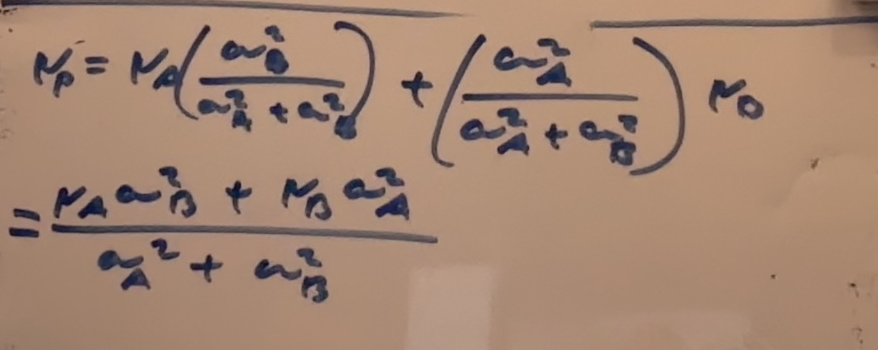 μ_p = μ_A (σ_B^2 / (σ_A^2 + σ_B^2)) + (σ_A^2 / (σ_A^2 + σ_B^2)) μ_B
= (μ_A σ_B^2 + μ_B σ_A^2) / (σ_A^2 + σ_B^2)